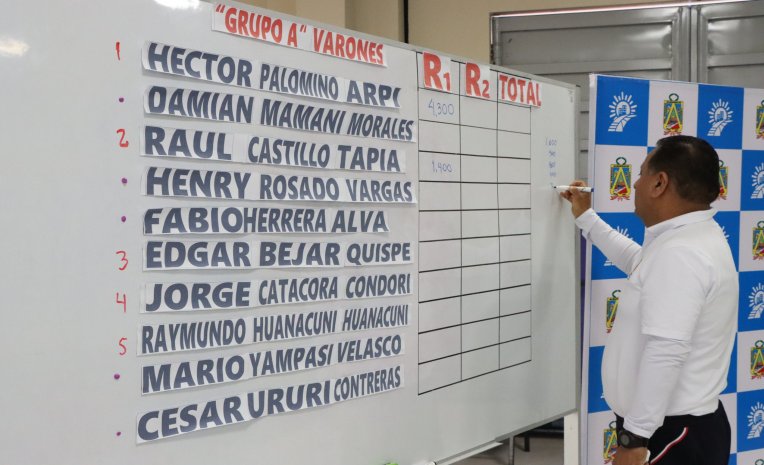 "GRUPO A" VARONES
R1 R2 TOTAL
1 HECTOR PALOMINO ARPI 4,300
DAMIAN MAMANI MORALES
2 RAUL CASTILLO TAPIA 1,900
HENRY ROSADO VARGAS
FABIO HERRERA ALVA
3 EDGAR BEJAR QUISPE
4 JORGE CATACORA CONDORI
5 RAYMUNDO HUANACUNI HUANACUNI
MARIO YAMPASI VELASCO
CESAR URURI CONTRERAS